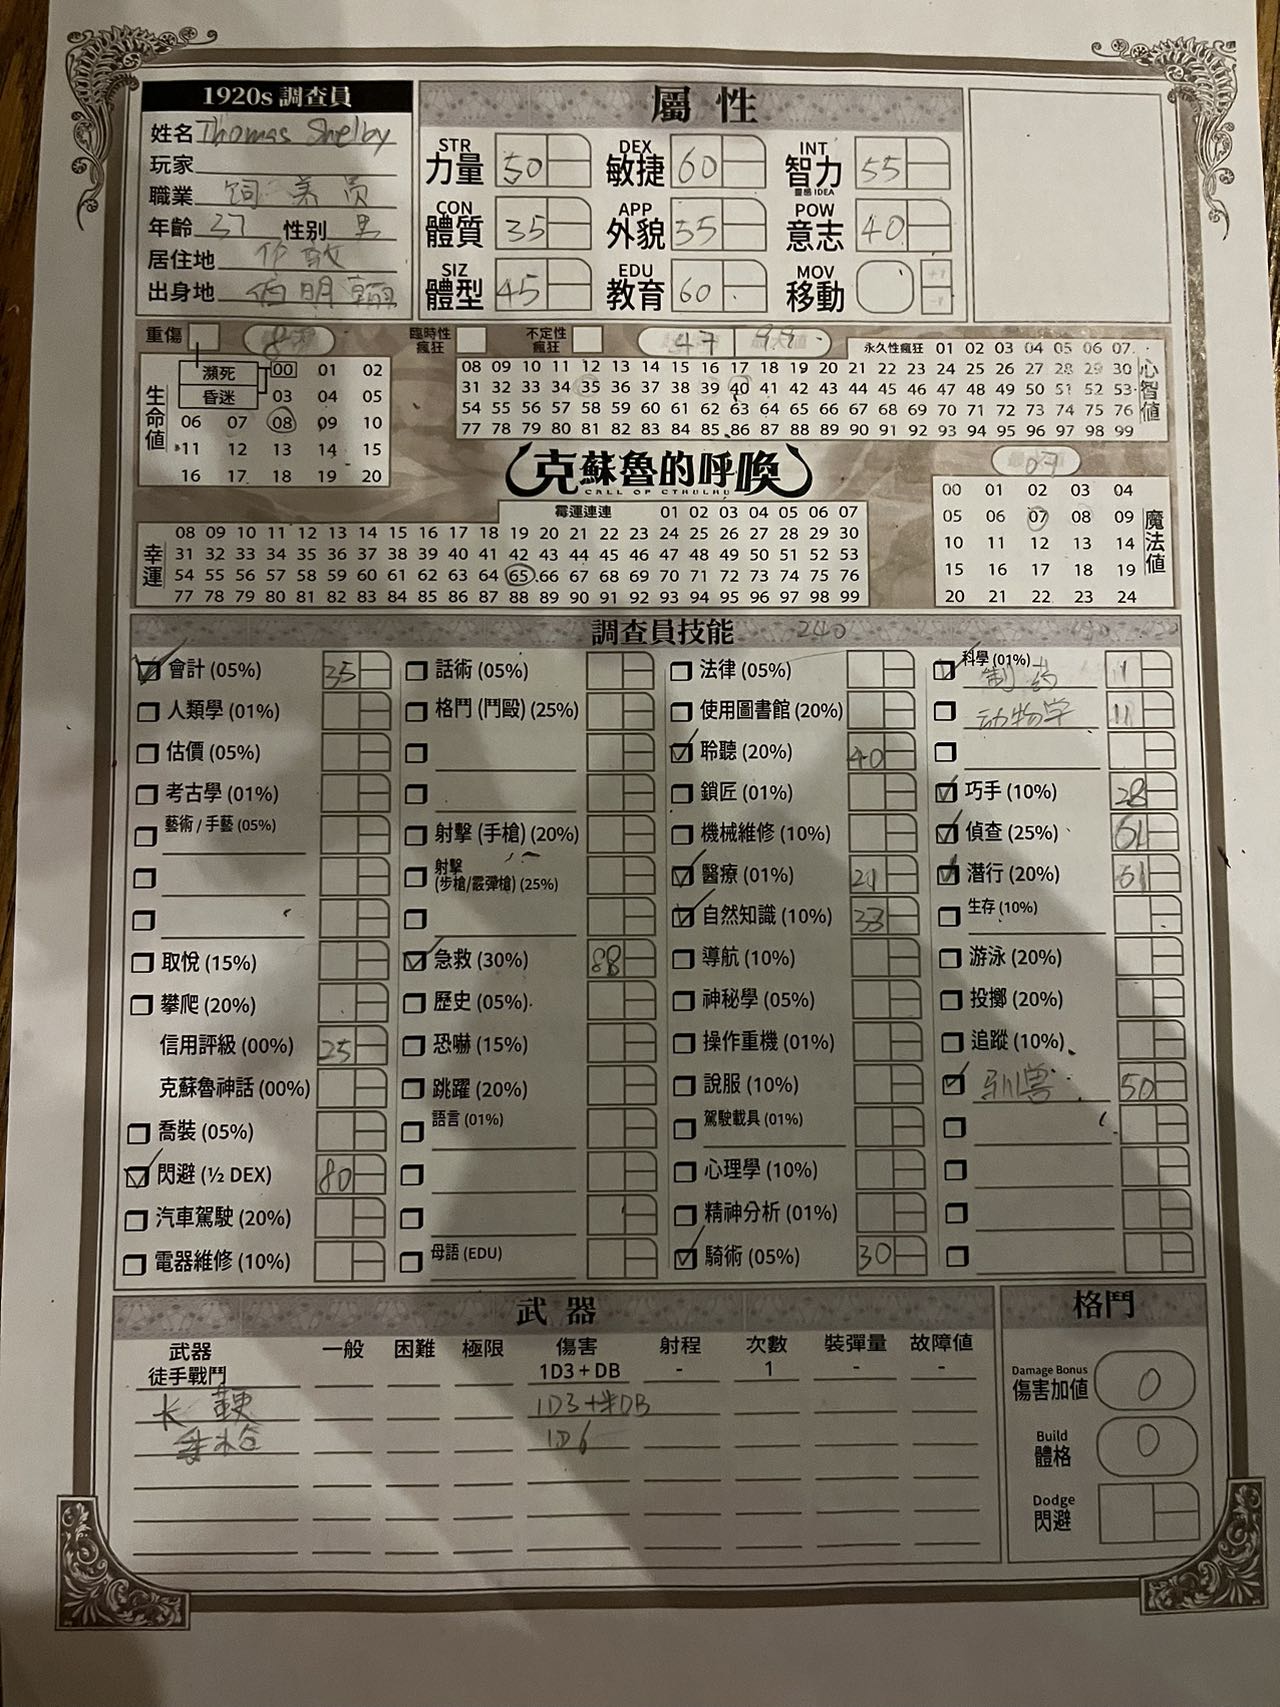 1920s 調查員
姓名 Thomas Shelby
玩家
職業 饲养员
年齡 37 性別 男
居住地 伦敦
出身地 伯明翰
屬性
STR 力量 50
DEX 敏捷 60
INT 智力 靈感 IDEA 55
CON 體質 35
APP 外貌 55
POW 意志 40
SIZ 體型 45
EDU 教育 60
MOV 移動 +1 -1
重傷
瀕死
昏迷
生命值
00 01 02
03 04 05
06 07 08 09 10
11 12 13 14 15
16 17 18 19 20
臨時性瘋狂
不定性瘋狂
47 99
永久性瘋狂 01 02 03 04 05 06 07
08 09 10 11 12 13 14 15 16 17 18 19 20 21 22 23 24 25 26 27 28 29 30
31 32 33 34 35 36 37 38 39 40 41 42 43 44 45 46 47 48 49 50 51 52 53
54 55 56 57 58 59 60 61 62 63 64 65 66 67 68 69 70 71 72 73 74 75 76
77 78 79 80 81 82 83 84 85 86 87 88 89 90 91 92 93 94 95 96 97 98 99
心智值
克蘇魯的呼喚
CALL OF CTHULHU
幸運
霉運連連 01 02 03 04 05 06 07
08 09 10 11 12 13 14 15 16 17 18 19 20 21 22 23 24 25 26 27 28 29 30
31 32 33 34 35 36 37 38 39 40 41 42 43 44 45 46 47 48 49 50 51 52 53
54 55 56 57 58 59 60 61 62 63 64 65 66 67 68 69 70 71 72 73 74 75 76
77 78 79 80 81 82 83 84 85 86 87 88 89 90 91 92 93 94 95 96 97 98 99
07
00 01 02 03 04
05 06 07 08 09
10 11 12 13 14
15 16 17 18 19
20 21 22 23 24
魔法值
調查員技能 240
會計 (05%) 35
人類學 (01%)
估價 (05%)
考古學 (01%)
藝術 / 手藝 (05%)
取悅 (15%)
攀爬 (20%)
信用評級 (00%) 25
克蘇魯神話 (00%)
喬裝 (05%)
閃避 (½ DEX) 80
汽車駕駛 (20%)
電器維修 (10%)
話術 (05%)
格鬥 (鬥毆) (25%)
射擊 (手槍) (20%)
射擊 (步槍/霰彈槍) (25%)
急救 (30%) 88
歷史 (05%)
恐嚇 (15%)
跳躍 (20%)
語言 (01%)
母語 (EDU)
法律 (05%)
使用圖書館 (20%)
聆聽 (20%) 40
鎖匠 (01%)
機械維修 (10%)
醫療 (01%) 21
自然知識 (10%) 33
導航 (10%)
神秘學 (05%)
操作重機 (01%)
說服 (10%)
駕駛載具 (01%)
心理學 (10%)
精神分析 (01%)
騎術 (05%) 30
科學 (01%) 制药 11
动物学 11
巧手 (10%) 28
偵查 (25%) 61
潛行 (20%) 61
生存 (10%)
游泳 (20%)
投擲 (20%)
追蹤 (10%)
驯兽 50
武器
武器 一般 困難 極限 傷害 射程 次數 裝彈量 故障值
徒手戰鬥 1D3 + DB - 1 - -
长鞭 1D3+半DB
1D6
格鬥
Damage Bonus 傷害加值 0
Build 體格 0
Dodge 閃避